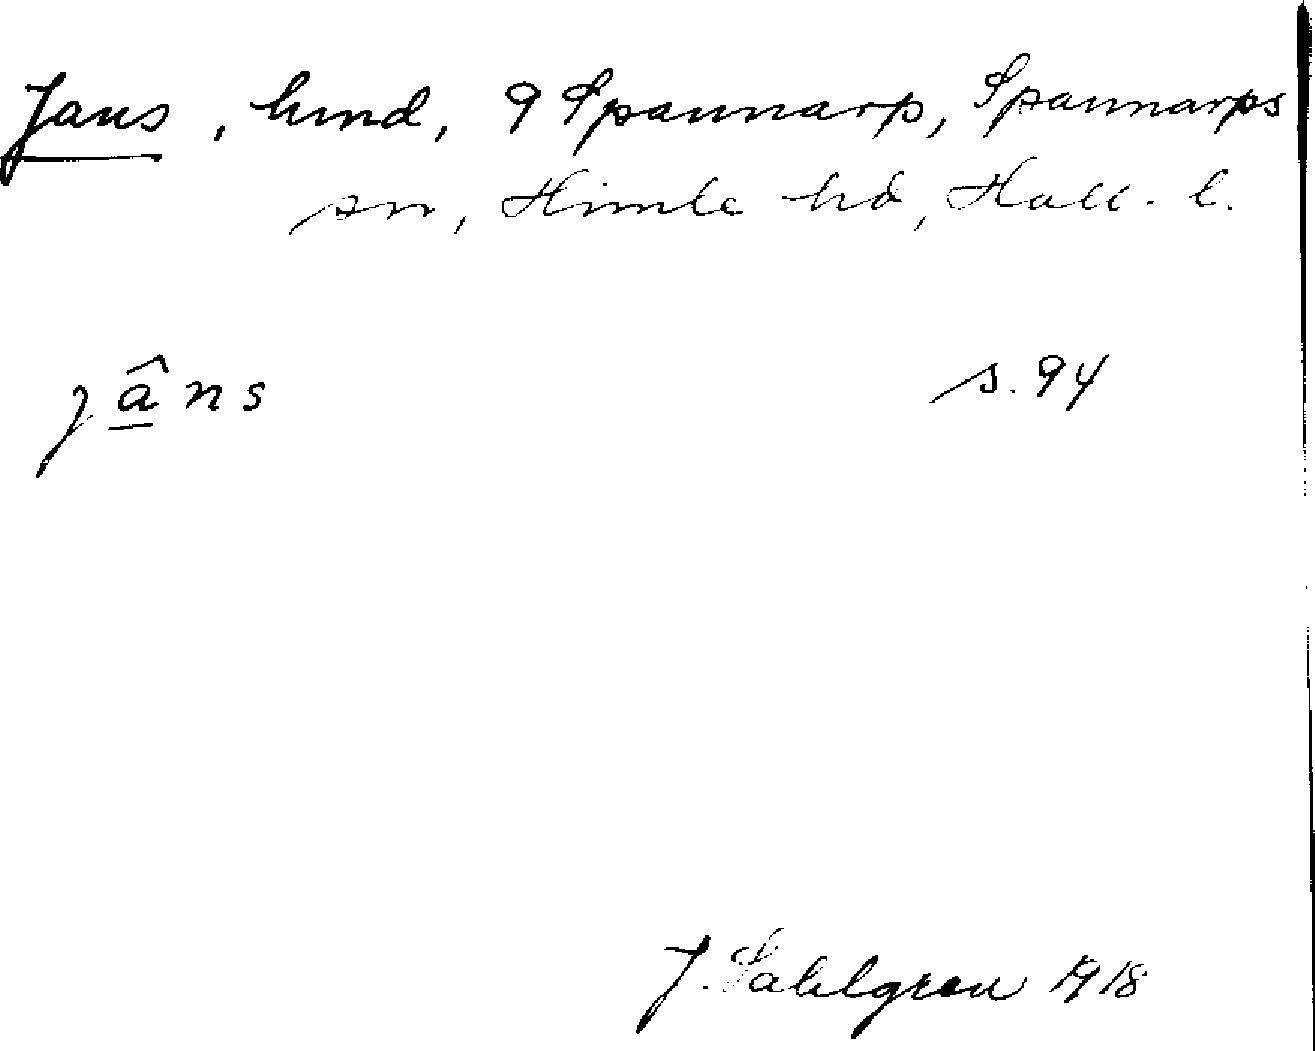 Jans, hmd, 9 Spannarp, Spannarps
sn, Himle hd, Hall. l.
jâns s. 94
J. Sahlgren 1918